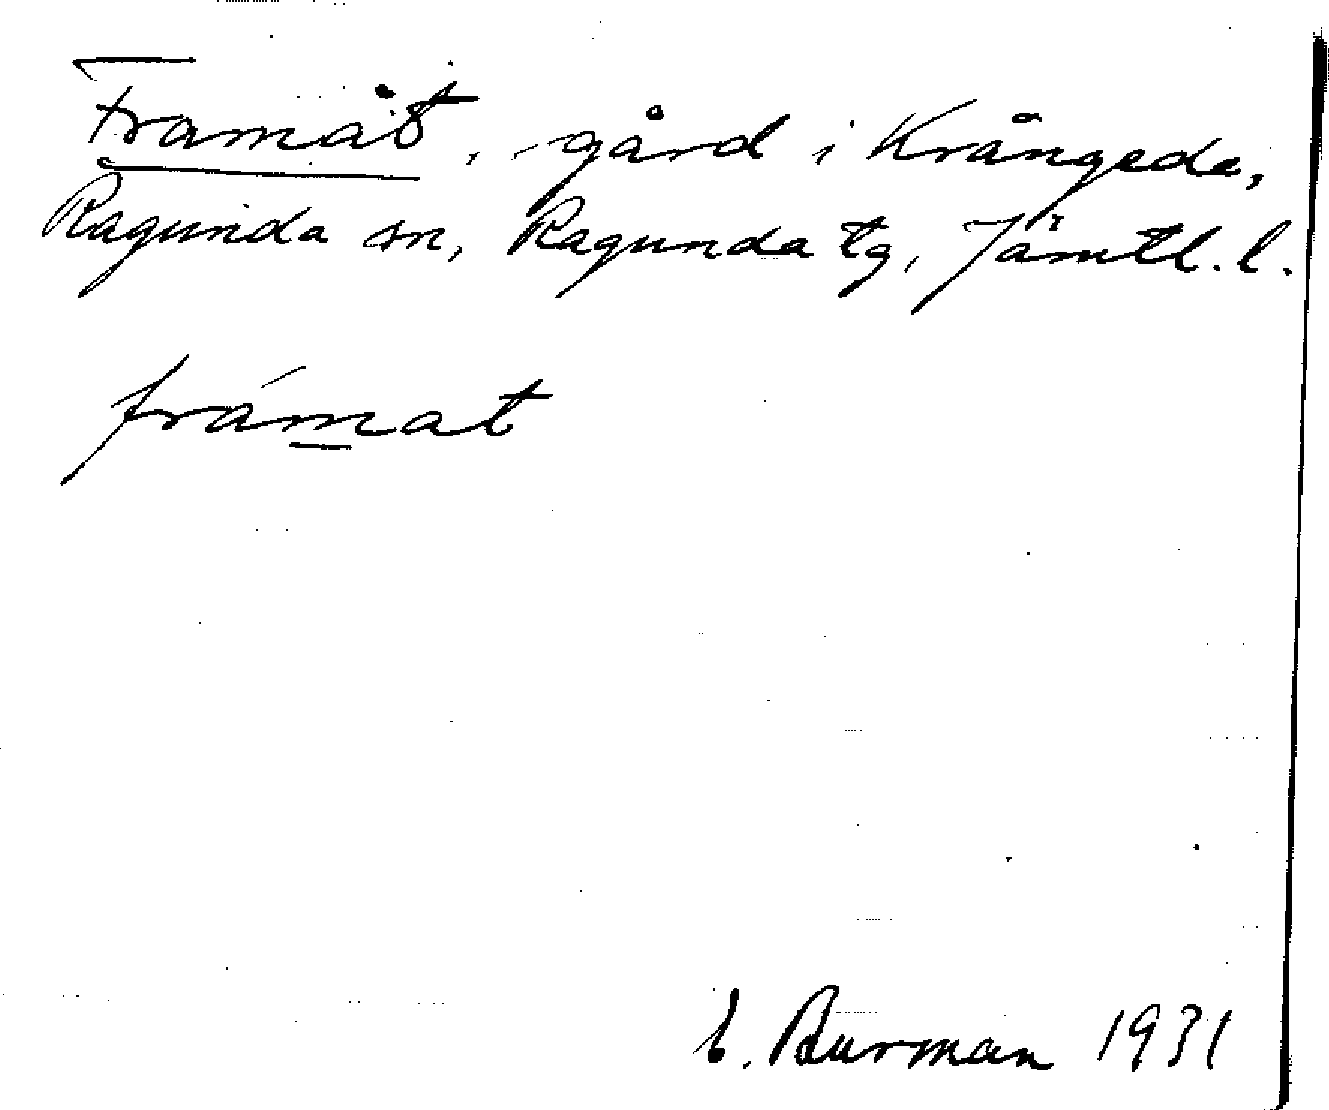 Framåt, gård i Krångede,
Ragunda sn, Ragunda tg, Jämtl. l.
frámat
E. Burman 1931